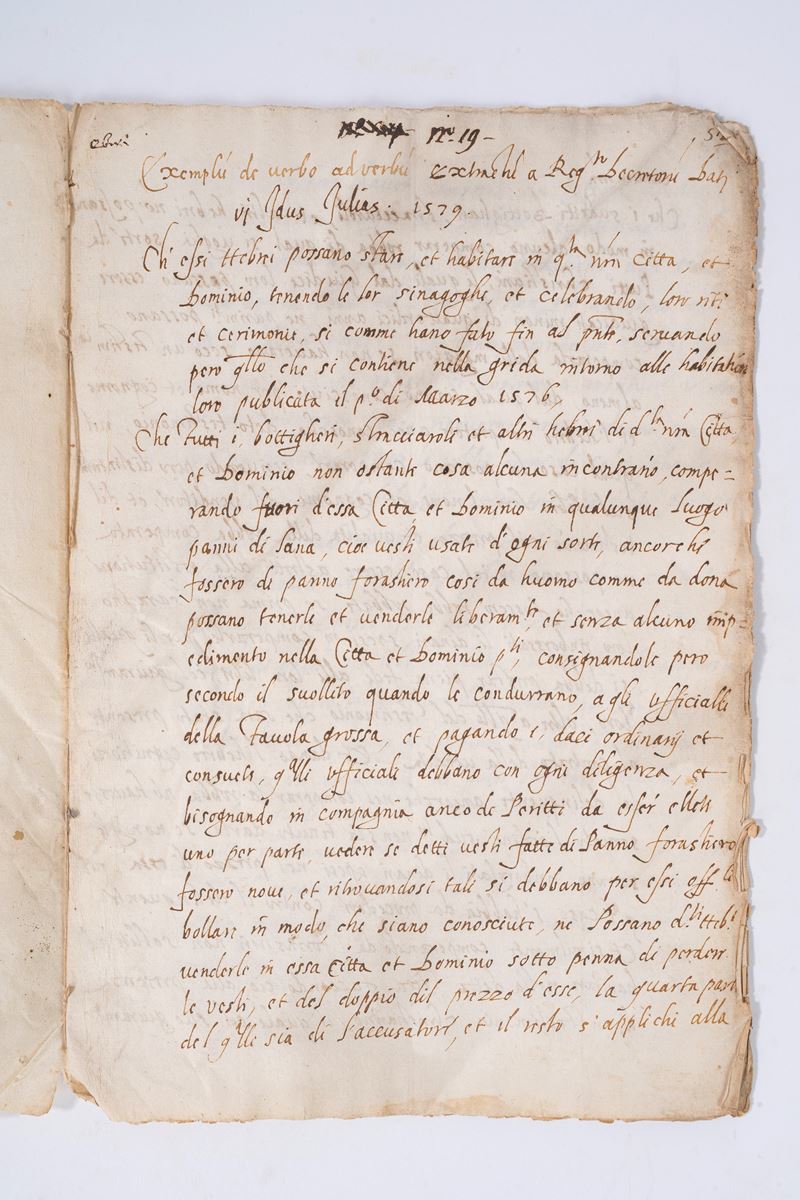 nº 19
Exemplũ de verbo ad verbũ extractũ a Reg.º Decretorũ Dat.
vj Idus Julias. 1579.
Ch' essi Hebrei possano stare, et habitare in q.ta nrã Citta, et
Dominio, tenendo le lor sinagoghe, et celebrando, loro riti
et cerimonie, si comme hano fato fin al pñte, servando
pero qllo che si contiene nella grida intorno alle habitationi
loro publicata il p.º di Marzo 1576,
Che Tutti i, bottigheri, stracciaroli et altri hebrei di d.ta nrã Citta,
et Dominio non ostante cosa alcuna incontrario, compe=
rando fuori d'essa Citta et Dominio in qualunque Luogo
panni di lana, cioe vesti usate d'ogni sorte, ancorche
fossero di panno forastiero cosi da huomo comme da dona
possano tenerle et venderle liberam.te et senza alcuno imp=
edimento nella Citta et Dominio p.ti, consignandole pero
secondo il suollito quando le condurrano, agli ufficialli
della Tavola grossa, et pagando i, daci ordinarij et
consueti, q'lli ufficiali debbano con ogni diligenza, et
bisognando in compagnia anco de Peritti da esser eletti
uno per parte, vedere se detti vesti fatte di Panno forastiero
fossero nove, et ritrovandosi tali si debbano per essi off.li
bollare in modo, che siano conosciute, ne Possano d.ti Heb.i
venderle in essa Citta et Dominio sotto penna di perdere
le vesti, et del doppio dil prezzo d'esse, la quarta parte
del q'lle sia di l'accusatore, et il resto s'applichi alla